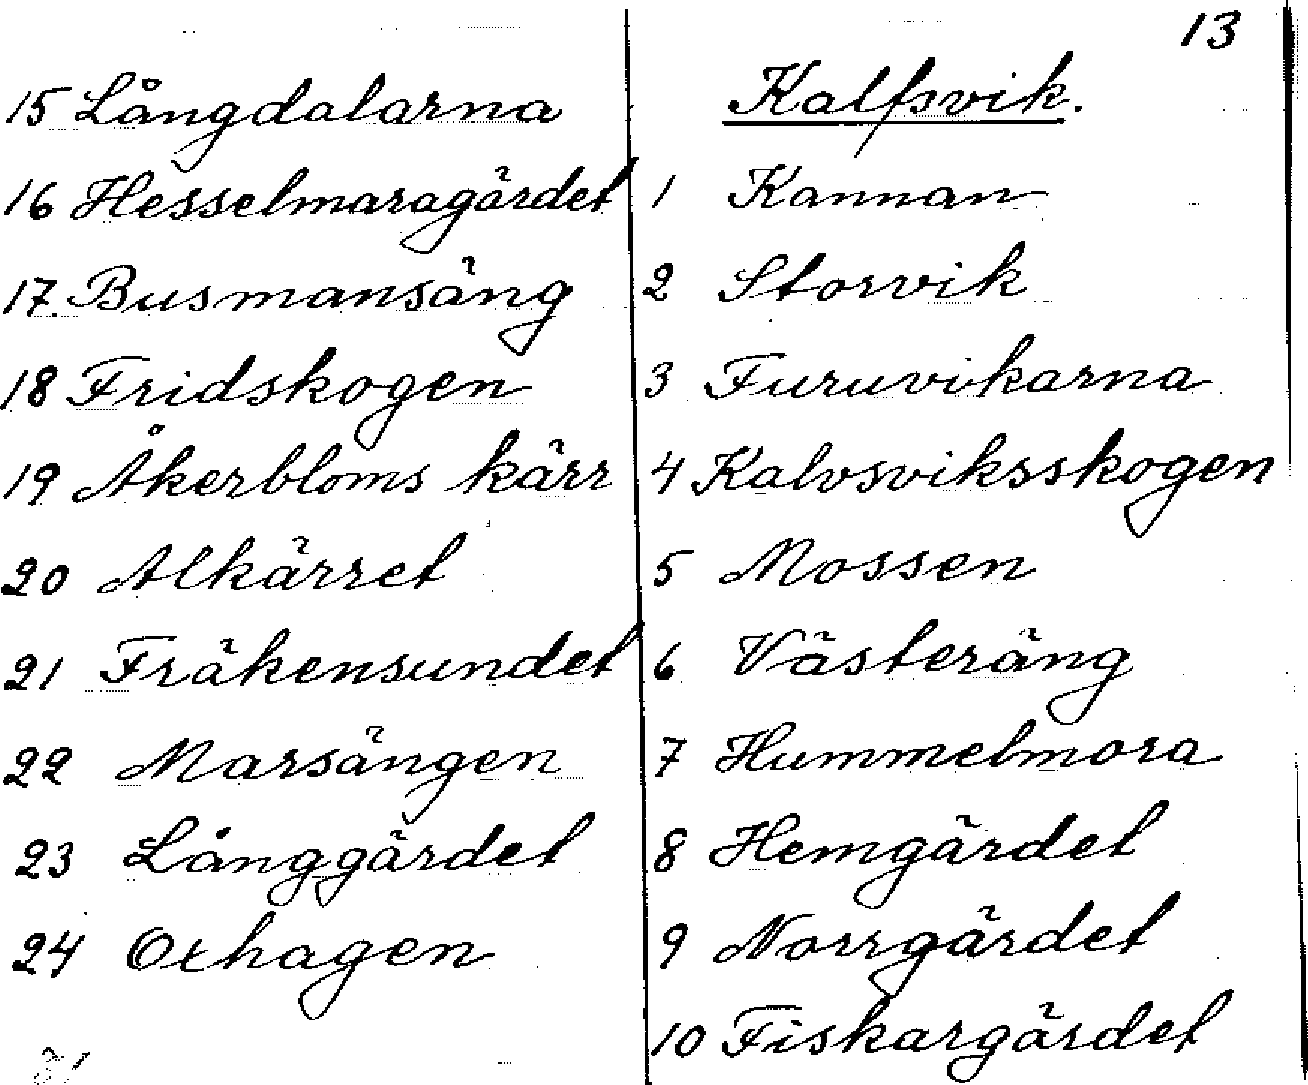 13
15 Långdalarna
16 Hesselmaragärdet
17. Busmansäng
18 Fridskogen
19 Åkerbloms kärr
20 Alkärret
21 Fräkensundet
22 Marsängen
23 Långgärdet
24 Oxhagen
Kalfsvik.
1 Kannan
2 Storvik
3 Furuvikarna
4 Kalvsviksskogen
5 Mossen
6 Västeräng
7 Hummelmora
8 Hemgärdet
9 Norrgärdet
10 Fiskargärdet